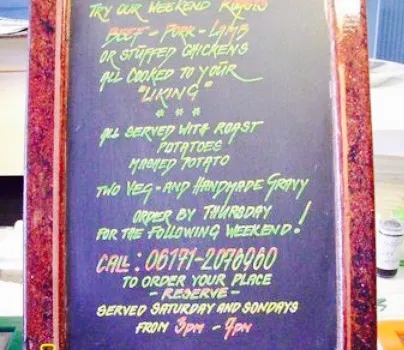 TRY OUR WEEKEND ROASTS
BEEF - PORK - LAMB
OR STUFFED CHICKENS
ALL COOKED TO YOUR
"LIKING"
* * *
ALL SERVED WITH ROAST
POTATOES
MASHED POTATO
TWO VEG - AND HANDMADE GRAVY
ORDER BY THURSDAY
FOR THE FOLLOWING WEEKEND!
CALL : 06171-2076960
TO ORDER YOUR PLACE
- RESERVE -
SERVED SATURDAY AND SONDAYS
FROM 3PM - 9PM